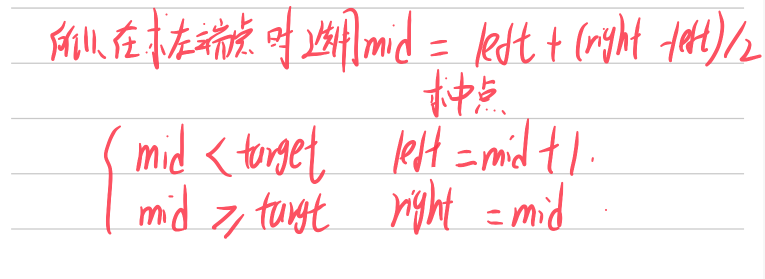 所以、在求左端点时选用mid = left + (right -left)/2
求中点
mid < target left = mid + 1.
mid ⩾ targt right = mid